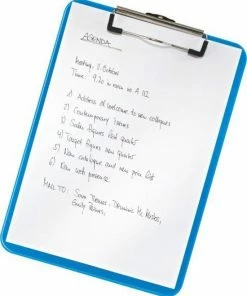 AGENDA
Meeting, 8. October
Time: 9.20 in room no A 112
1) Address of welcome to new colleagues
2) Contemporary issues
3) Sales figures last quarter
4) Target figures new quarter
5) New catalogue and new price list
6) New web presence
MAIL TO: Dominic
Emily